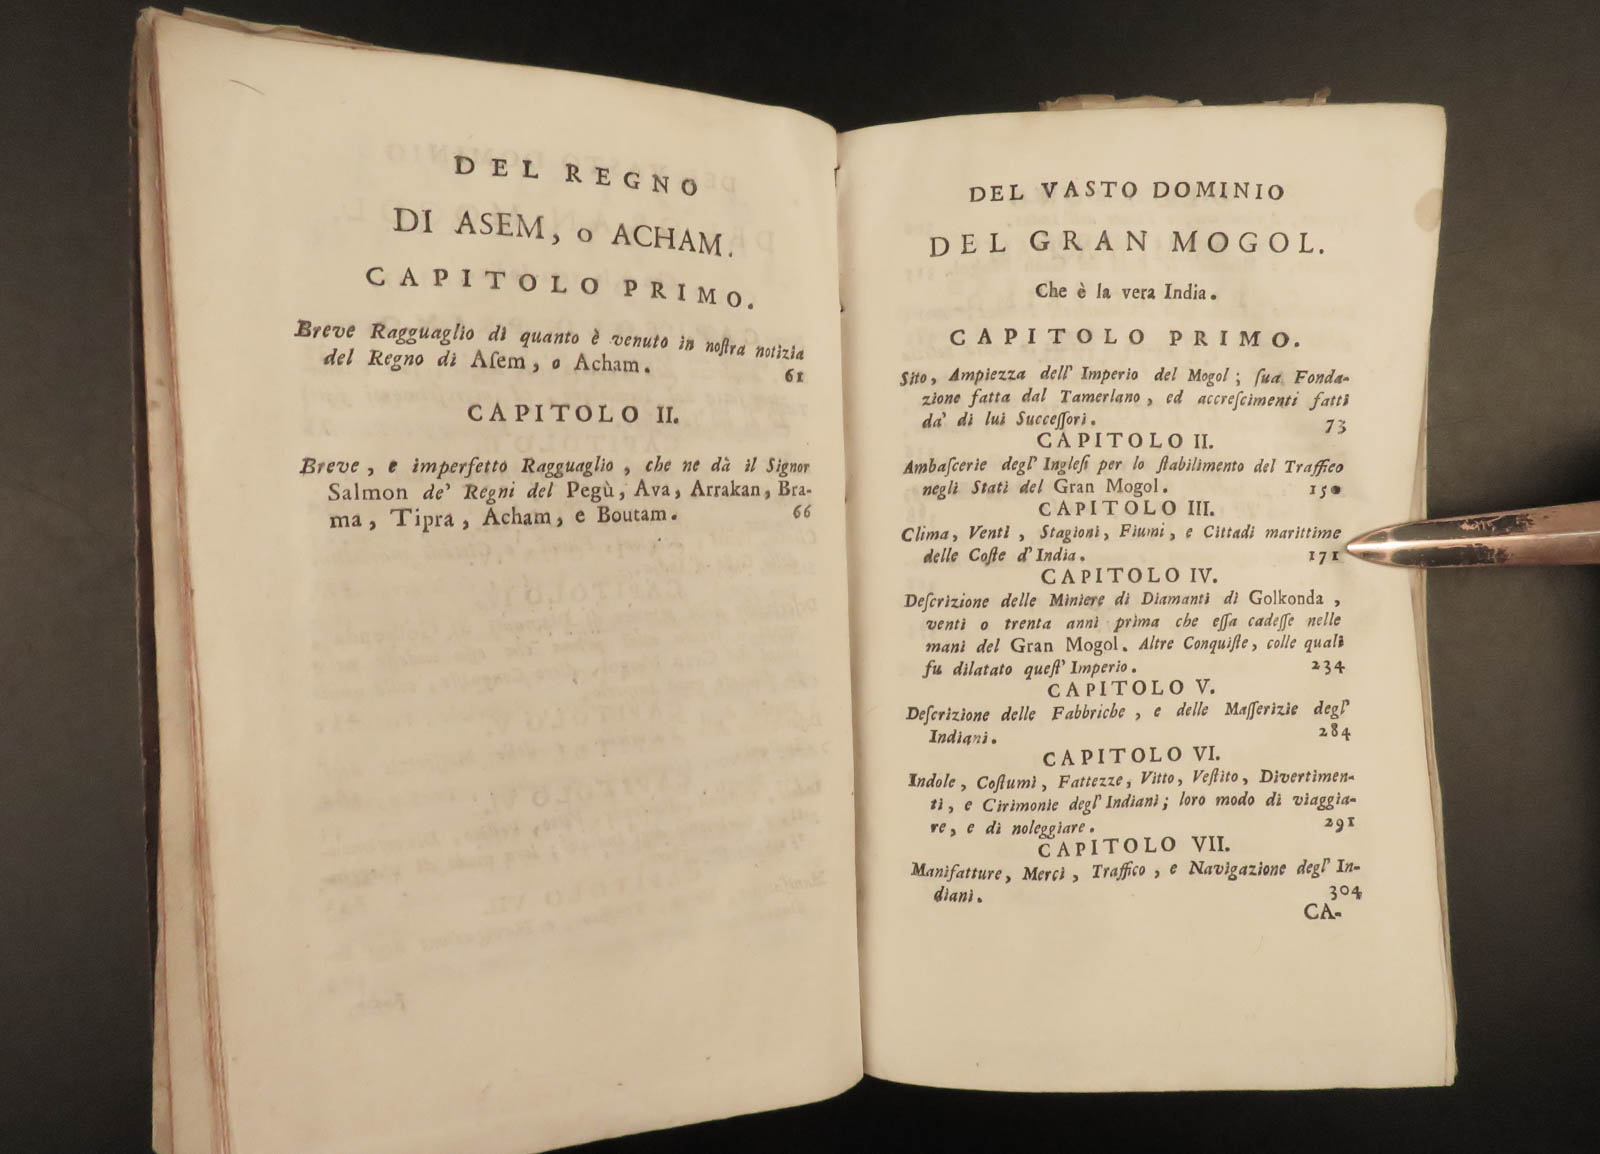 DEL REGNO
DI ASEM, o ACHAM.
CAPITOLO PRIMO.
Breve Ragguaglio di quanto è venuto in noſtra notizia
del Regno di Aſem, o Acham. 61
CAPITOLO II.
Breve, e imperfetto Ragguaglio, che ne dà il Signor
Salmon de' Regni del Pegù, Ava, Arrakan, Bra-
ma, Tipra, Acham, e Boutam. 66
DEL VASTO DOMINIO
DEL GRAN MOGOL.
Che è la vera India.
CAPITOLO PRIMO.
Sito, Ampiezza dell' Imperio del Mogol; ſua Fonda-
zione fatta dal Tamerlano, ed accreſcimenti fatti
da' di lui Succeſſori. 73
CAPITOLO II.
Ambaſcerie degl' Ingleſi per lo ſtabilimento del Traffico
negli Stati del Gran Mogol. 150
CAPITOLO III.
Clima, Venti, Stagioni, Fiumi, e Cittadi marittime
delle Coſte d'India. 171
CAPITOLO IV.
Deſcrizione delle Miniere di Diamanti di Golkonda,
venti o trenta anni prima che eſſa cadeſſe nelle
mani del Gran Mogol. Altre Conquiſte, colle quali
fu dilatato queſt' Imperio. 234
CAPITOLO V.
Deſcrizione delle Fabbriche, e delle Maſſerizie degl'
Indiani. 284
CAPITOLO VI.
Indole, Coſtumi, Fattezze, Vitto, Veſtito, Divertimen-
ti, e Cirimonie degl' Indiani; loro modo di viaggia-
re, e di noleggiare. 291
CAPITOLO VII.
Manifatture, Merci, Traffico, e Navigazione degl' In-
diani. 304
CA-